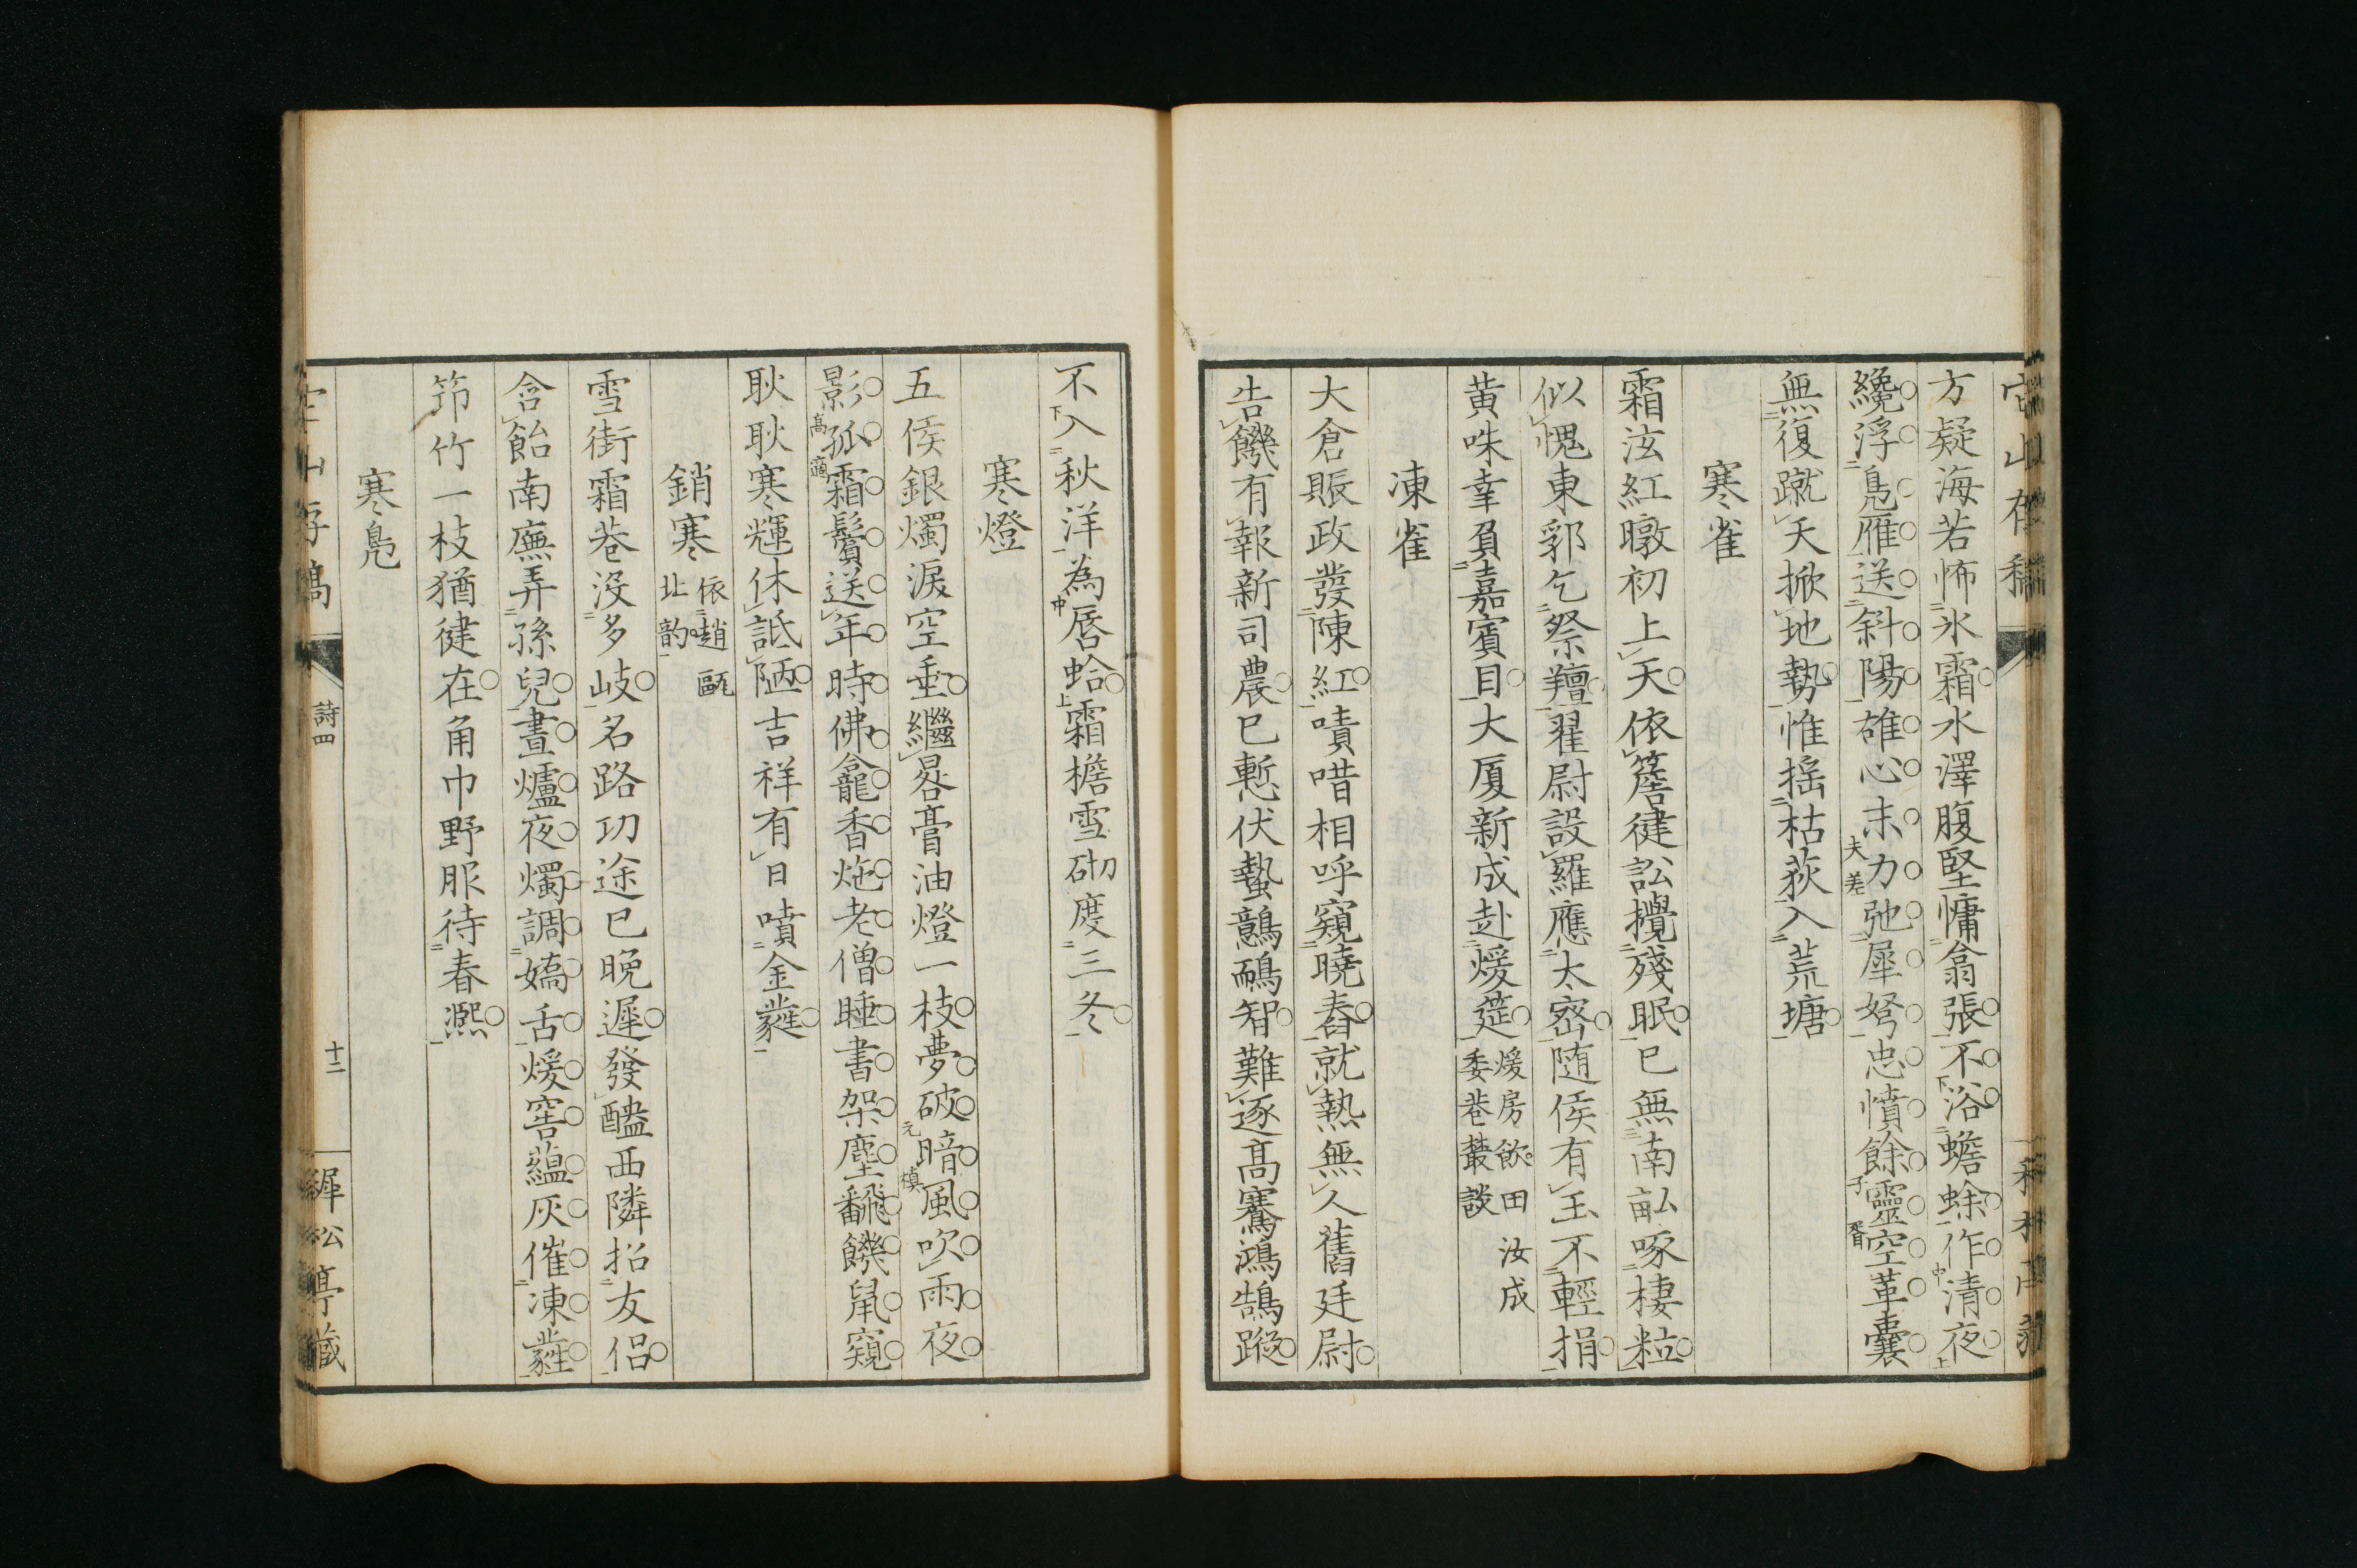 方疑海若怖氷霜水澤腹堅慵翕張不浴蟾蜍作清夜
纔浮鳬雁送斜陽雄心未力弛犀弩忠憤餘靈空革囊
夫差
子胥
無復蹴天掀地勢惟揺枯荻入荒塘
寒雀
霜泫紅暾初上天依簷徤訟攪殘眠已無南畝啄棲粒
似愧東郭乞祭羶翟尉設羅應太密随侯有玉不輕捐
黄咮幸負嘉賓目大厦新成赴煖筵
煖房飲田汝成
委巷叢談
凍雀
大倉賑政發陳紅嘖唶相呼窺曉舂就熱無人舊廷尉
告饑有報新司農已慙伏蟄鷾鴯智難逐高騫鴻鵠蹤
詩四
十二
犀松亭藏
不入秋洋為唇蛤霜檐雪砌度三冬
寒燈
五侯銀燭淚空垂繼晷膏油燈一枝夢破暗風吹雨夜
元稹
影孤霜鬢送年時佛龕香灺老僧睡書架塵飜饑鼠窺
高適
耿耿寒輝休詆陋吉祥有日噴金蕤
銷寒
依趙甌
北韵
雪街霜巷没多岐名路功途已晩遲發醠西隣招友侶
含飴南廡弄孫兒晝爐夜燭調嬌舌煖窖蘊灰催凍蕤
笻竹一枝猶徤在角巾野服待春凞
寒鳬